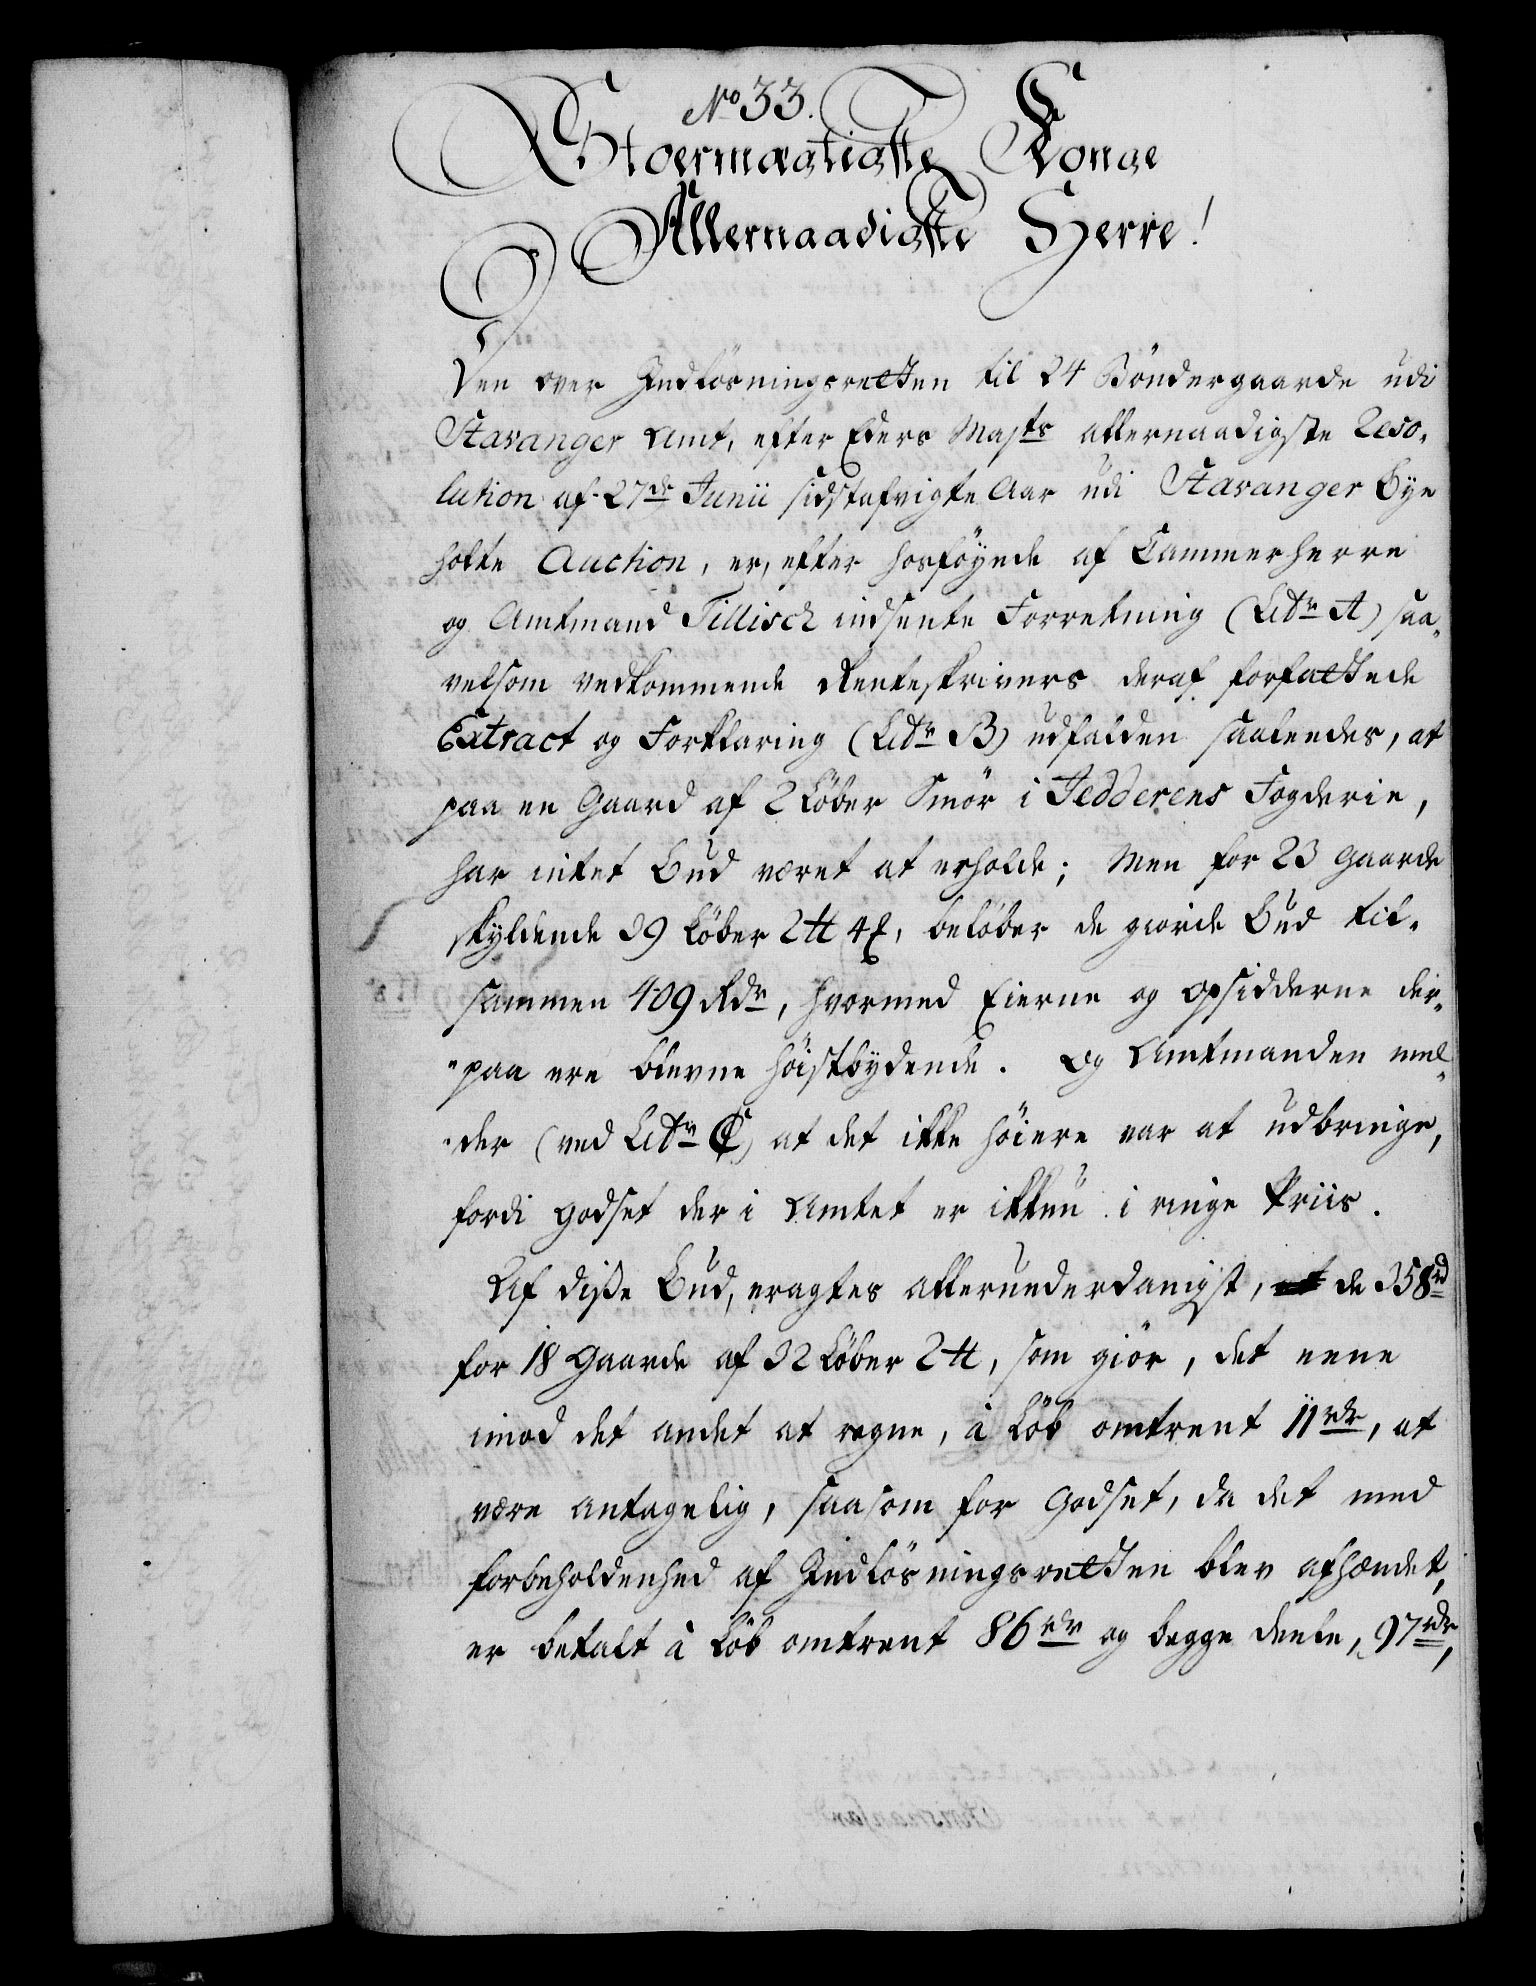 No 33.
Stoermægtigste Konge
Allernaadigste Herre!
Den over Indløsningsretten til 24 Bøndergaarde udi
Stavanger Amt, efter Eders Majts allernaadigste Reso-
lution af 27de Junii sidstafvigte Aar udi Stavanger Bye
holte Auction, er, efter hosføyede af Cammerherre
og Amtmand Tillisch indsente Forretning (Litr A) saa-
velsom vedkommende Renteskrivers deraf forfattede
Extract og Forklaring (Litr B) udfalden saaledes, at
paa en Gaard af 2 Løber Smør i Jedderens Fogderie,
har intet Bud været at erholde; Men for 23 Gaarde
skyldende 39 Løber 2 tt 4, beløber de giorde Bud til-
sammen 409 Rdr, hvormed Eierne og Opsidderne der-
paa ere blevne høistbydende. Og Amtmanden mel-
der (ved Litr C) at det ikke høiere var at udbringe,
fordi Godset der i Amtet er ikkun i ringe Priis.
Af disse Bud, eragtes allerunderdanigst, de 358rd
for 18 Gaarde af 32 Løber 2 tt, som giør, det eene
imod det andet at regne, à Løb omtrent 11rdr, at
være antagelig, saasom for Godset, da det med
forbeholdenhed af Indløsningsretten blev afhændet,
er betalt à Løb omtrent 86rdr og begge deele, 97rdr,